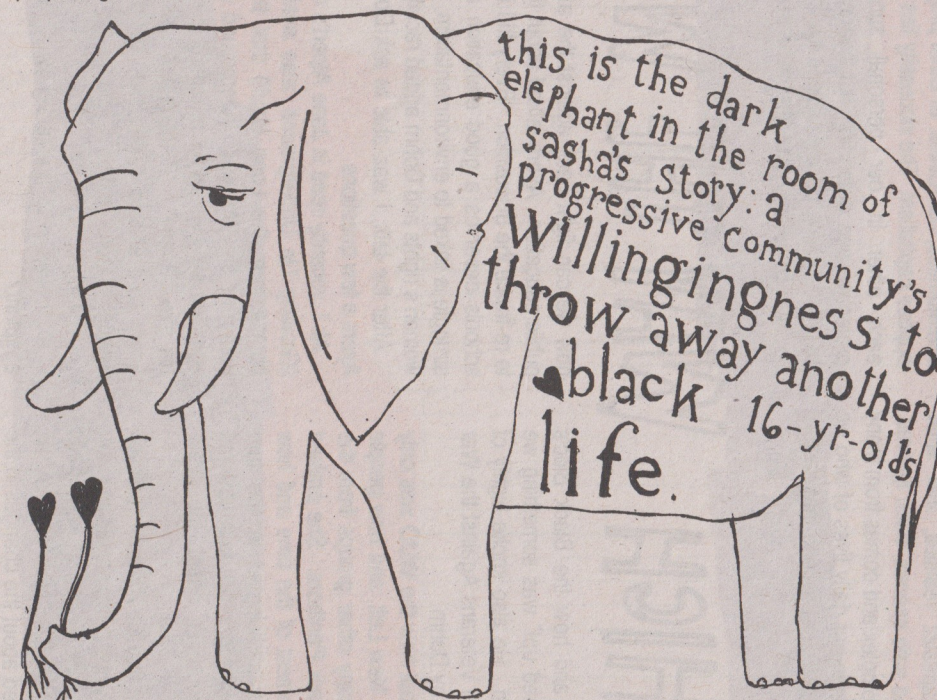 this is the dark
elephant in the room of
sasha's story: a
progressive community's
Willingingness to
throw away another
black 16-yr-old's
life.